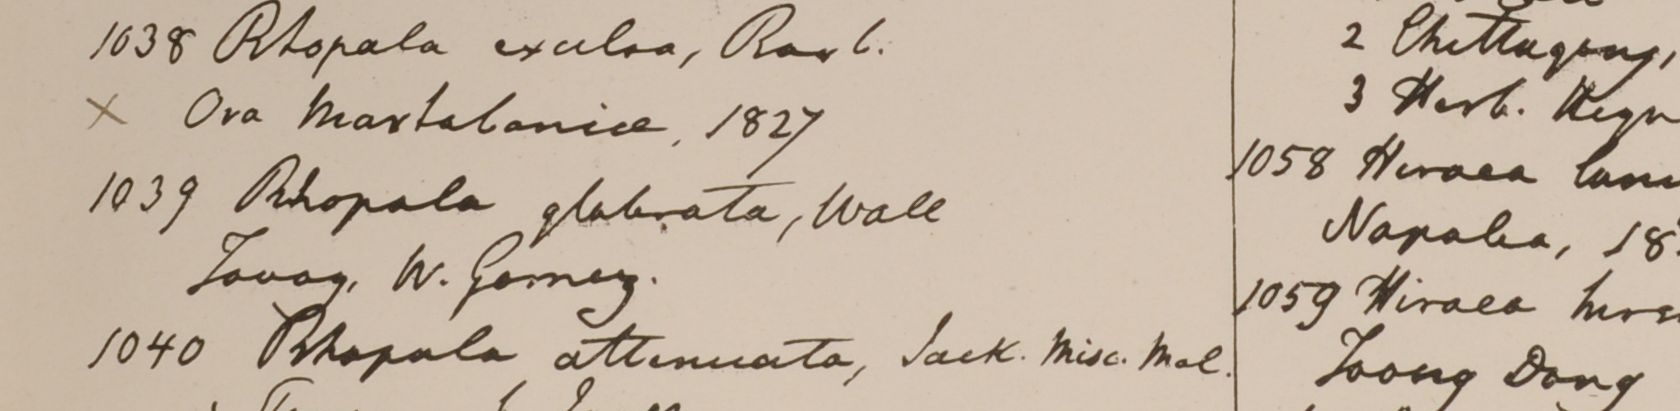 1038 Rhopala excelsa, Roxb.
x Ora Martabanice, 1827
1039 Rhopala glabrata, Wall
Tavoy, W. Gomez.
1040 Rhopala attenuata, Jack. Misc. Mal.
2 Chittagong,
3 Herb.
1058 Hiraea
Napalia, 18
1059 Hiraea
Toong Dong